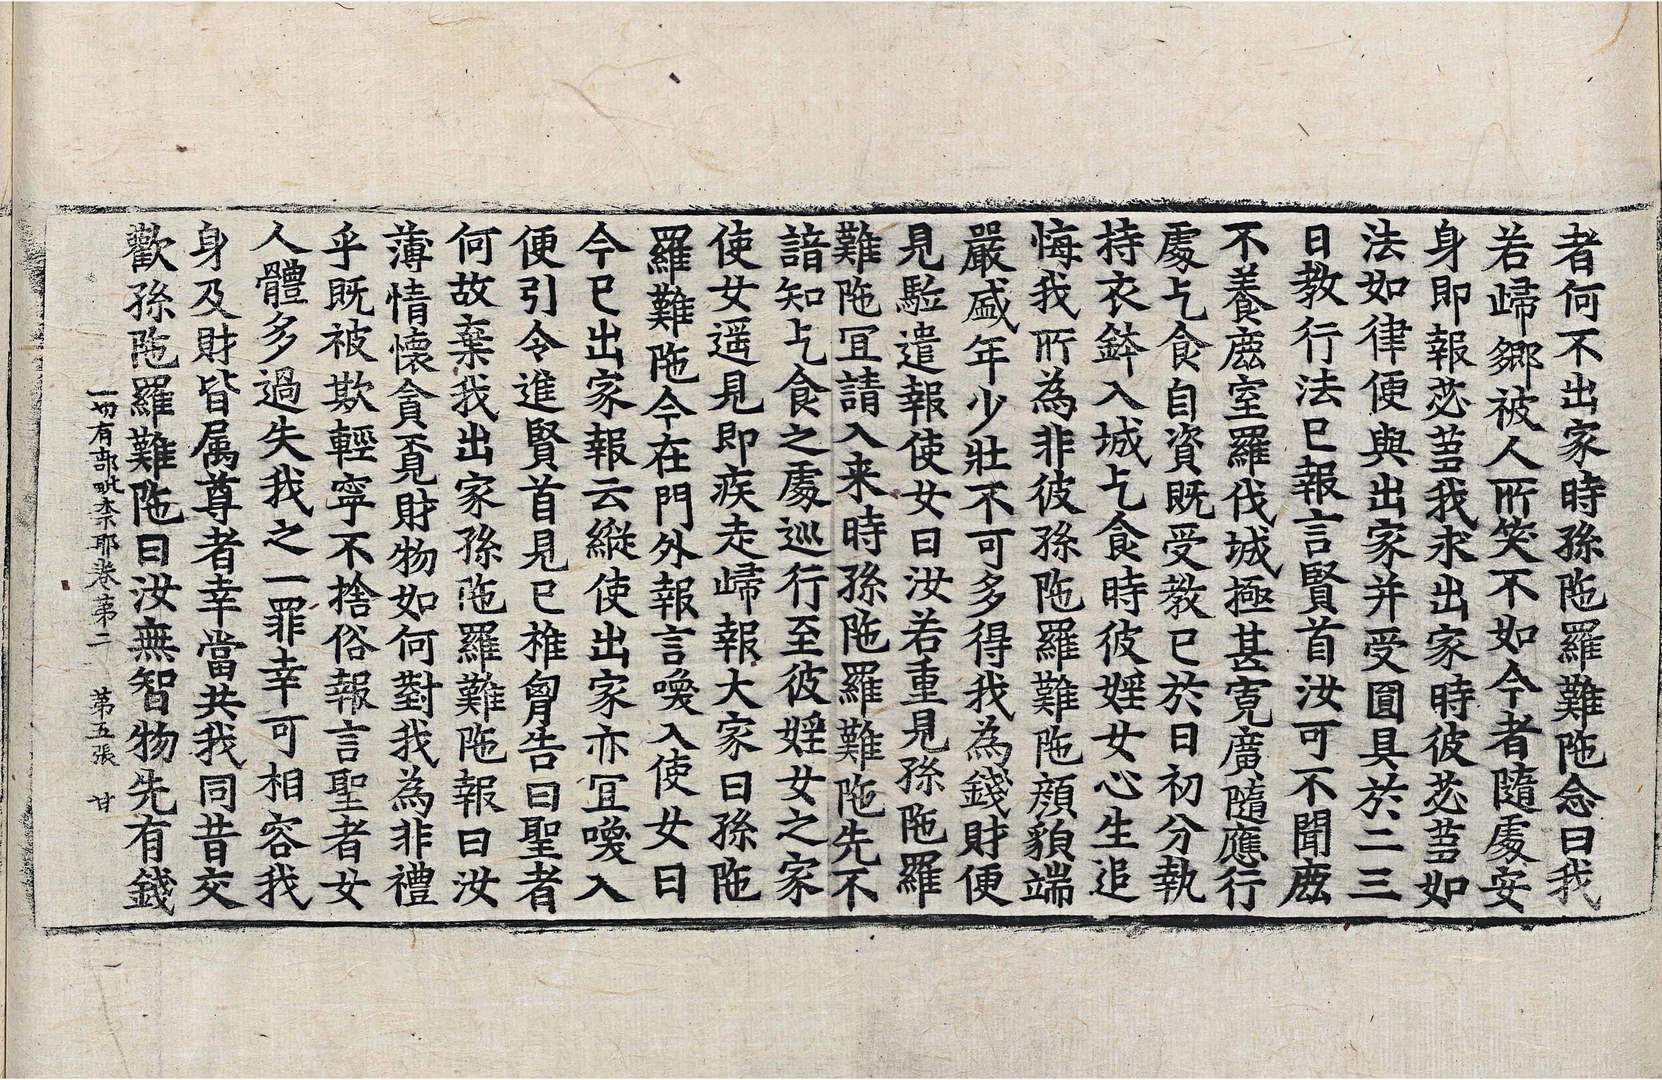 者何不出家時孫陁羅難陁念曰我
若歸鄉被人所笑不如今者隨處安
身即報苾芻我求出家時彼苾芻如
法如律便與出家并受圓具於二三
日教行法已報言賢首汝可不聞鹿
不養鹿室羅伐城極甚寬廣隨應行
處乞食自資既受教已於日初分執
持衣鉢入城乞食時彼婬女心生追
悔我所為非彼孫陁羅難陁顔貌端
嚴盛年少壯不可多得我為錢財便
見駈遣報使女曰汝若重見孫陁羅
難陁冝請入来時孫陁羅難陁先不
諳知乞食之處巡行至彼婬女之家
使女遥見即疾走歸報大家曰孫陁
羅難陁今在門外報言喚入使女曰
今已出家報云縱使出家亦冝喚入
便引令進賢首見已椎胷告曰聖者
何故棄我出家孫陁羅難陁報曰汝
薄情懷貪覔財物如何對我為非禮
乎既被欺輕寧不捨俗報言聖者女
人體多過失我之一罪幸可相容我
身及財皆属尊者幸當共我同昔交
歡孫陁羅難陁曰汝無智物先有錢
一切有部毗柰耶卷第二 第五張 甘